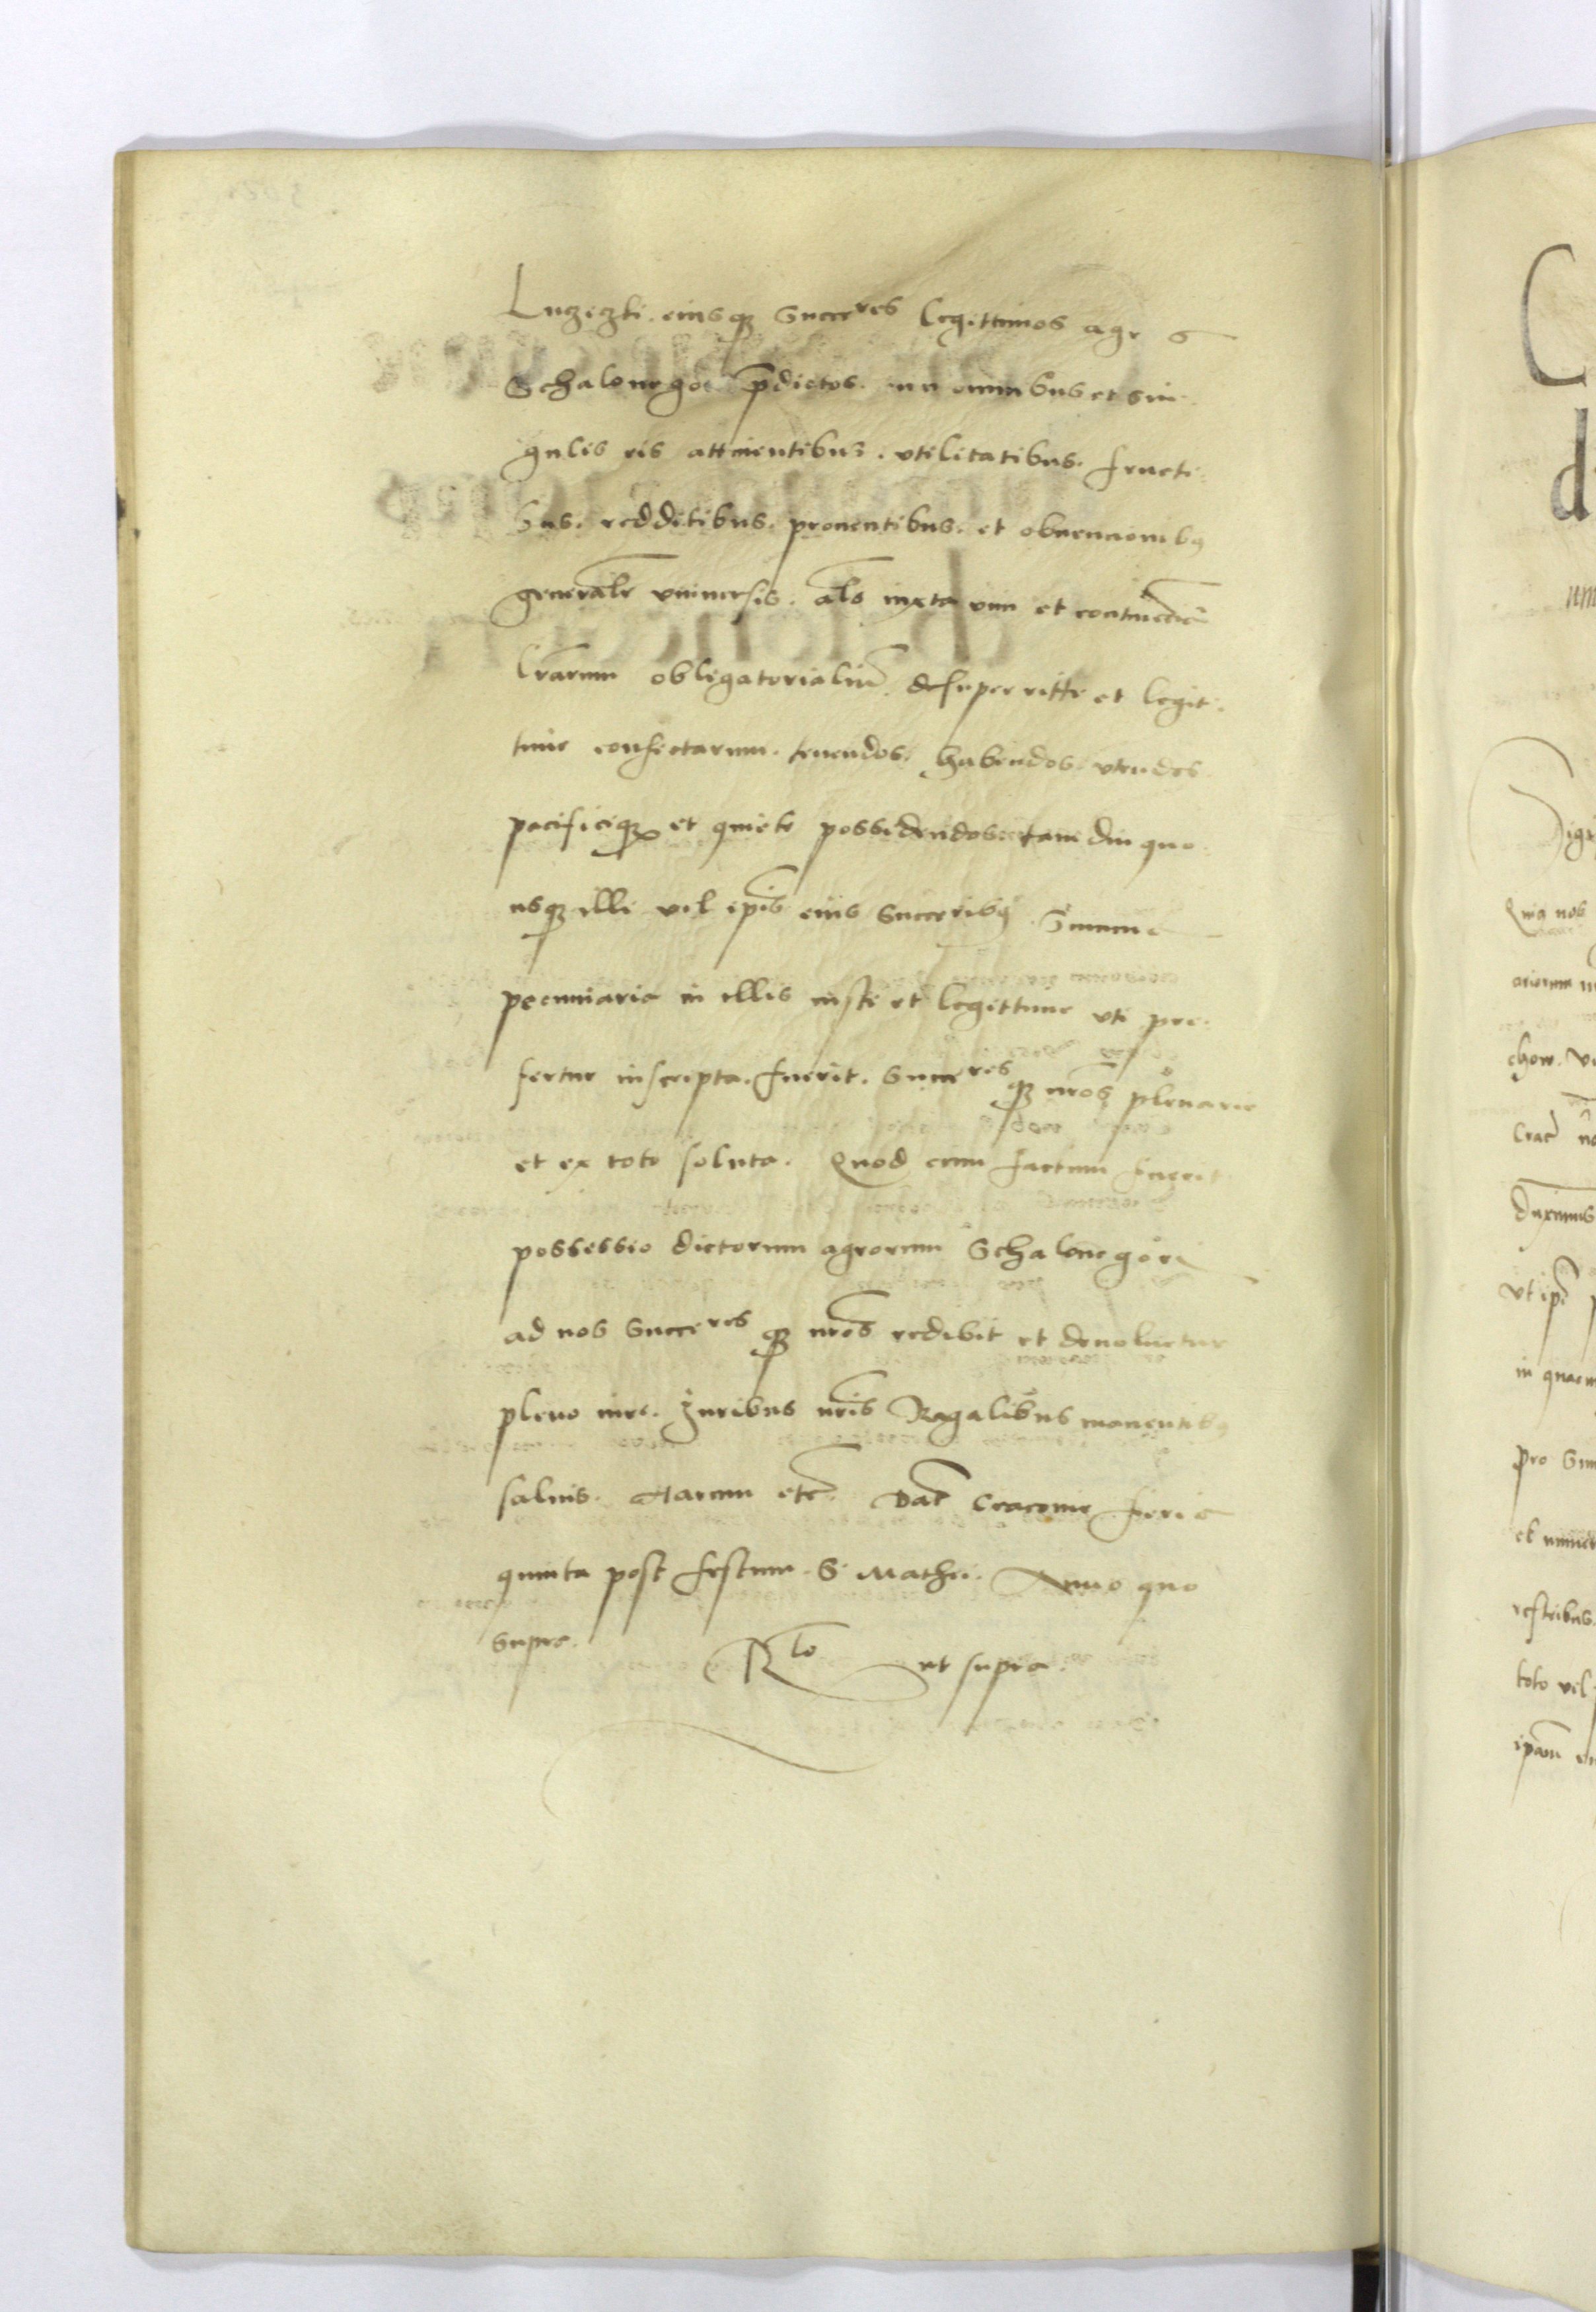 Luczizki. eiusqȝ Succeres legittimos agr s
Schalonegor p̄dictos. cum omnibus et sin
gulis eis attinentibus. vtilitatibus. fructi
bus. redditibus. prouentibus. et obuencionibꝫ
generalr̄ vniuersis. al̄s iuxta vim et continencīa
lr̄arum obligatorialiū desuper ritte et legit
time confectarum. tenendos. habendos. vtendos
pacificeqȝ et quiete possidendos tamdiu quo
usqȝ illi vel ip̄is eius Succeribꝫ Summa
pecuniaria in illis iuste et legittime vti pre
fertur inscripta. fuerit. Succeres qȝ nr̄os plenarie
et ex toto soluta. Quod cum factum fuerit
possessio dictorum agrorum Schalonegori
ad nos Succeres qȝ nr̄os redibit et deuoluetur
pleno iure. Juribus nr̄is Regalibus manentibꝫ
saluis. Harum etc̄. Dat̄ Cracouie feria
quinta post festum. S. Mathei. Anno quo
supra. Rlo ut supra.
C
d
Quia nos
chow.
Crac̄
Duximus
vt ip̄i
in quacu
pro Sum
toto vel
ip̄am